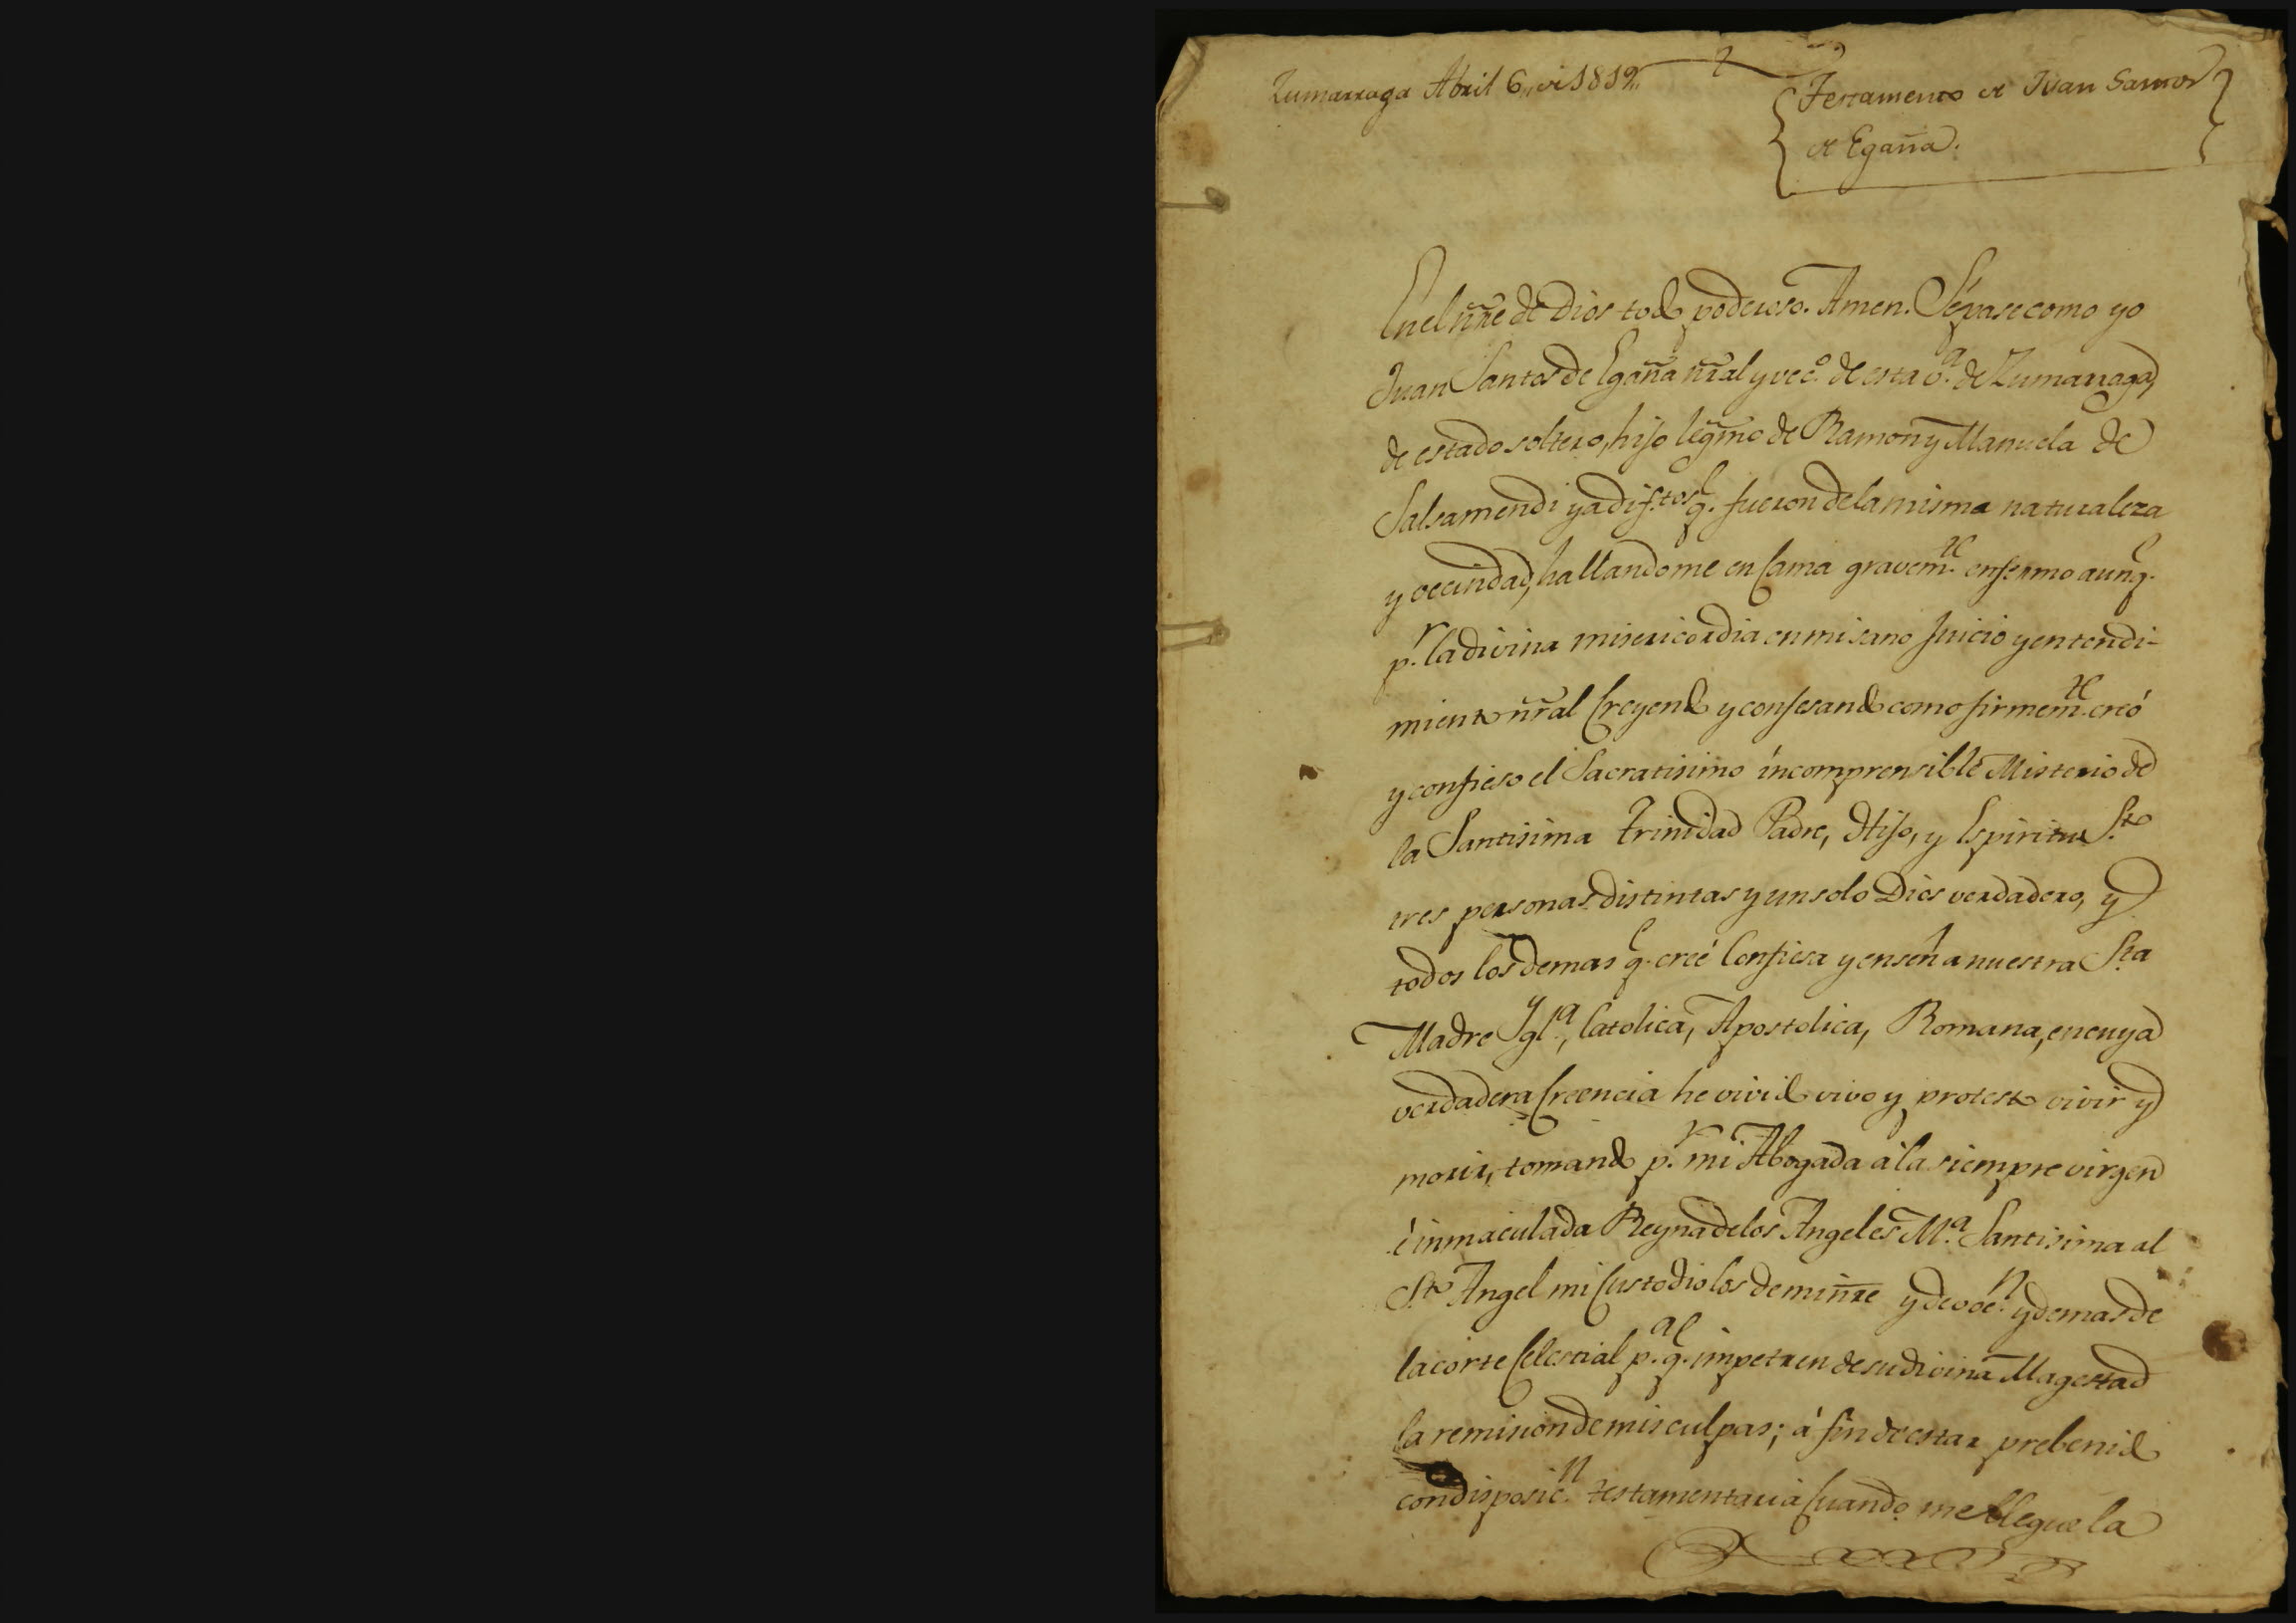 Zumarraga Abril 6,, de 1819,,
Testamento de Juan Santos
de Egaña.
En el nr̃e de Dios todo poderoso. Amen. Sépase como yo
Juan Santos de Egaña nr̃al y vec.º de esta v.ª de Zumarraga,
de estado soltero, hijo legm̃o de Ramon y Manuela de
Salsamendi ya dif.tos q.e fueron de la misma naturaleza
y vecindad, hallandome en Cama gravem.te enfermo aunq.e
p.r la divina misericordia en mi sano Juicio y entendi-
miento nr̃al Creyendo y confesando como firmem.te creó
y confieso el Sacratisimo íncomprensible Misterio de
la Santisima Trinidad Padre, Hijo, y Espiritu S.to
tres personas distintas y un solo Dios verdadero, y
todos los demas q.e creé Confiesa y enseña nuestra S.ta
Madre Ygl.ª, Catolica, Apostolica, Romana, en cuya
verdadera Creencia he vivido vivo y protesto vivir y
morir, tomando p.r mi Abogada á la siempre virgen
é inmaculada Reyna de los Angeles M.ª Santisima al
S.to Angel mi Custodio los de mi nr̃e y devoc.n y demas de
la corte Celestial p.a q.e impetren de su divina Magestad
la remision de mis culpas; á fin de estar prebenido
con disposic.n testamentaria Cuando me llegue la